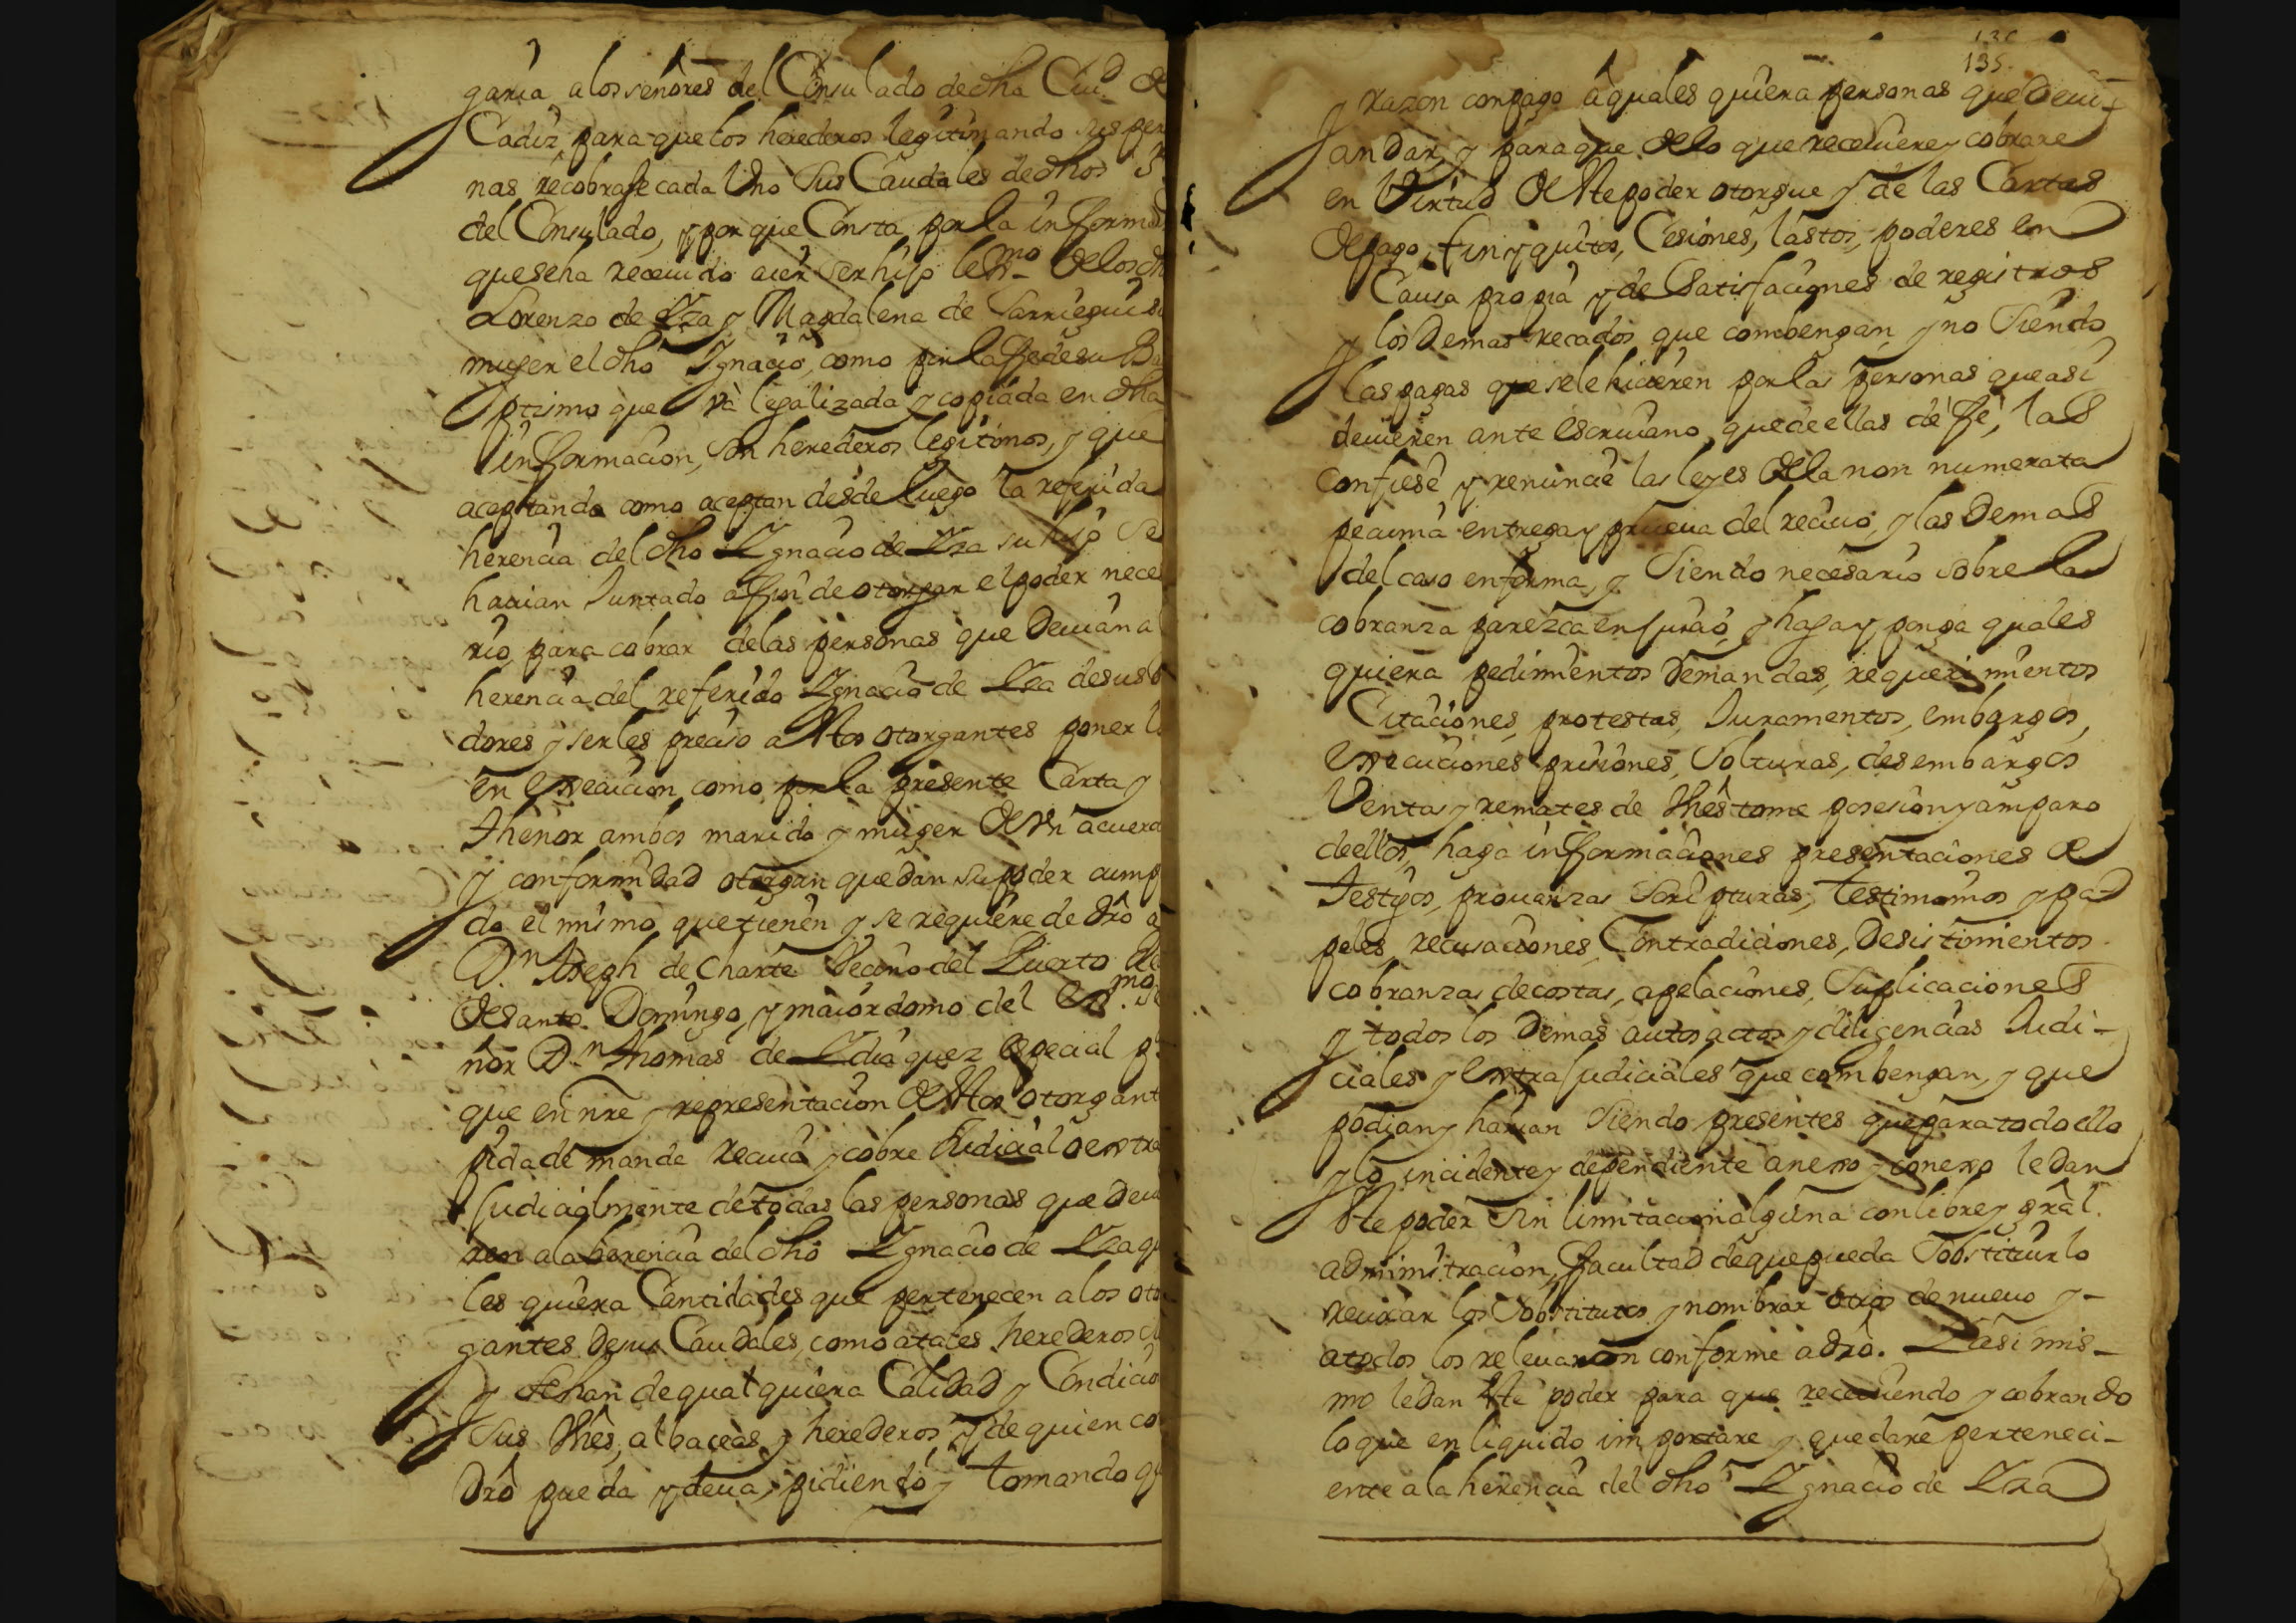 garia a los señores del Consulado de dha Ciud de
Cadiz para que los herederos legitimando sus per
nas recobrase cada Uno Sus Caudales de dhos S.
del Consulado, y por que Consta por la informa
que se ha receuido auer ser hijo lexmo de los dh
Lorenzo de Yza y Magdalena de Sarriegui su
muger el dho Ygnacio, como por la fee de su Ba
ptismo que va legalizada y copiada en dha
informacion, son herederos legitimos, y que
aceptando como aceptan desde luego la referida
herencia del dho Ygnacio de Yza su hijo Se
hauian Juntado a fin de otorgar el poder nece
rio, para cobrar de las personas que Deuian a
herencia del referido Ygnacio de Yza de sus
dores y serles preciso a estos otorgantes poner lo
en execucion como por la presente Carta y
thenor ambos marido y muger de Un acuerd
y conformidad otorgan que dan su poder cump
do el mismo que tienen y se requiere de dro a
Dn. Joseph de Charte Vecino del Puerto de
de Santo Domingo, y maiordomo del Exmo. Se
ñor Dn thomas de Ydiaquez especial p
que en nre y representacion de estos otorgant
pida demande Reciua y cobre Judicial o extra
judicialmente de todas las personas que Deui
ren a la herencia del dho Ygnacio de Yza qu
les quiera Cantidades que pertenecen a los oto
gantes de sus Caudales, como a tales herederos
y se han de qualquiera Calidad y Condicio
Sus Vnes, albaceas y herederos y de quien co
dro pueda y deua, pidiendo y tomando qu
135.
y Razon con pago a quales quiera personas que Deui-
an dar, y para que de lo que receuiere y cobrare
en Virtud de Este poder otorgue y de las Cartas
de pago, finyquitos, Cesiones, lastos, poderes en
Causa propia y de Satisfaciones de registros
y los Demas recados que combengan, y no Siendo
las pagas que se le hicieren por las personas que asi
deuieren ante escriuano, que de ellas de fe, las
confiese y renuncie las leyes de la non numerata
pecunia entrega y prueua del reciuo, y las Demas
del caso en forma, y Siendo necesario sobre la
cobranza parezca en juicio, y haga y ponga quales
quiera pedimientos Demandas, requerimientos
Citaciones, protestas, Juramentos, embargos,
execuciones prisiones, Solturas, desembargos
Ventas y remates de Vnes tome posesion y amparo
de ellos, haga informaciones presentaciones de
testigos, prouanzas Scripturas, testimonios y pa-
peles, recusaciones, Contradiciones, Desistimientos
cobranzas de costas, apelaciones, Suplicaciones
y todos los Demas autos actos y diligencias Judi-
ciales y extrajudiciales que combengan, y que
podian y harian Siendo presentes que para todo ello
y lo incidente y dependiente anexo y conexo le dan
Este poder Sin limitacion alguna con libre y gral.
administracion, facultad de que pueda Sobstituirlo
reuocar los Sobstitutos y nombrar otros de nueuo y-
a todos los releuaron conforme a dro. Y asi mis-
mo le dan Este poder para que receuiendo y cobrando
lo que en liquido importare y quedare perteneci-
ente a la herencia del dho Ygnacio de Yza